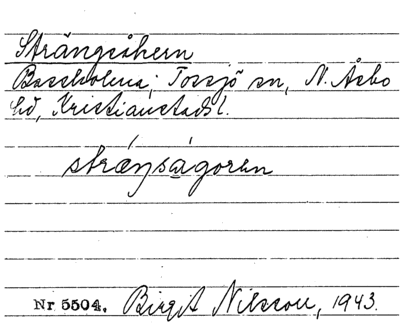 Strängsåkern
Bassholma; Tossjö sn, N. Åsbo
hd, Kristianstads l.
stræŋsågoren
Nr 5504. Birgit Nilsson, 1943.